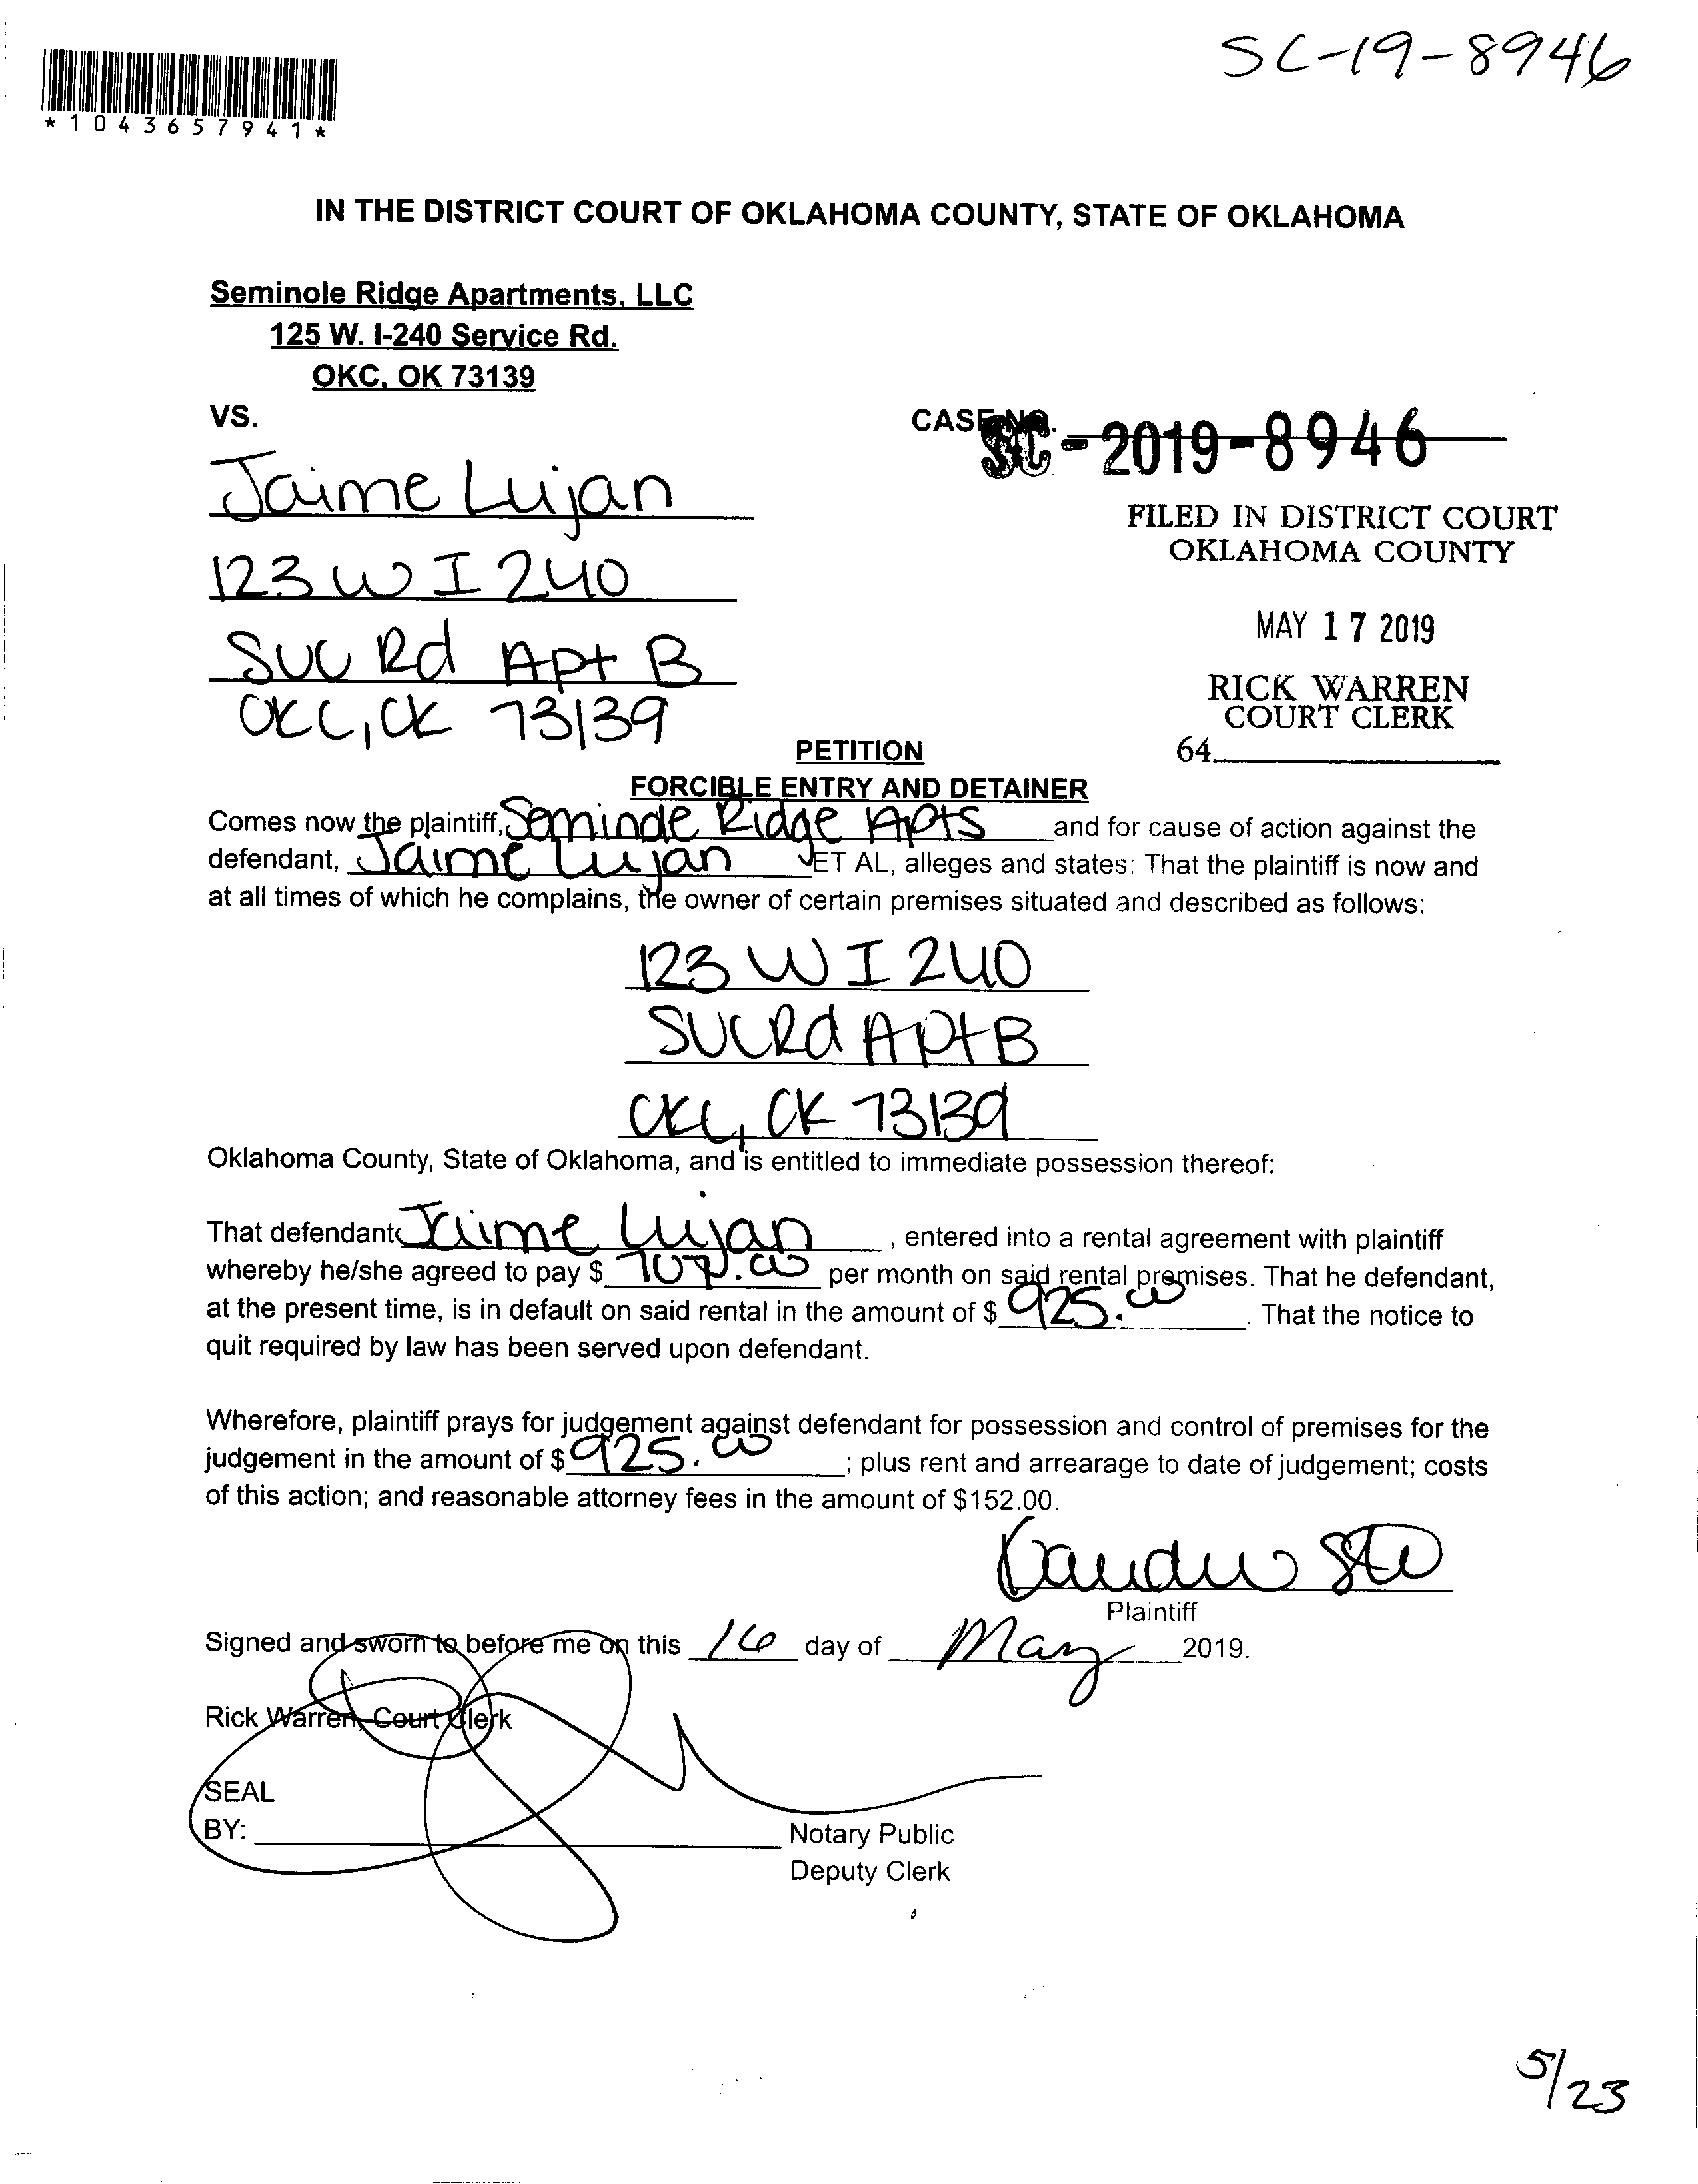 SC-19-8946
*1043657941*
IN THE DISTRICT COURT OF OKLAHOMA COUNTY, STATE OF OKLAHOMA
Seminole Ridge Apartments, LLC
125 W. I-240 Service Rd.
OKC, OK 73139
VS.
CASE NO.
SC-2019-8946
Jaime Lujan
123 W I 240
SVC Rd Apt B
OKC, OK 73139
FILED IN DISTRICT COURT
OKLAHOMA COUNTY
MAY 17 2019
RICK WARREN
COURT CLERK
64
PETITION
FORCIBLE ENTRY AND DETAINER
Comes now the plaintiff, Seminole Ridge Apts and for cause of action against the
defendant, Jaime Lujan ET AL, alleges and states: That the plaintiff is now and
at all times of which he complains, the owner of certain premises situated and described as follows:
123 W I 240
SVC Rd Apt B
OKC, OK 73139
Oklahoma County, State of Oklahoma, and is entitled to immediate possession thereof:
That defendant Jaime Lujan, entered into a rental agreement with plaintiff
whereby he/she agreed to pay $ per month on said rental premises. That he defendant,
at the present time, is in default on said rental in the amount of $ 925.00. That the notice to
quit required by law has been served upon defendant.
Wherefore, plaintiff prays for judgement against defendant for possession and control of premises for the
judgement in the amount of $ 925.00; plus rent and arrearage to date of judgement; costs
of this action; and reasonable attorney fees in the amount of $152.00.
Plaintiff
Signed and sworn to before me on this 16 day of May 2019.
Rick Warren, Court Clerk
SEAL
BY:
Notary Public
Deputy Clerk
5/23